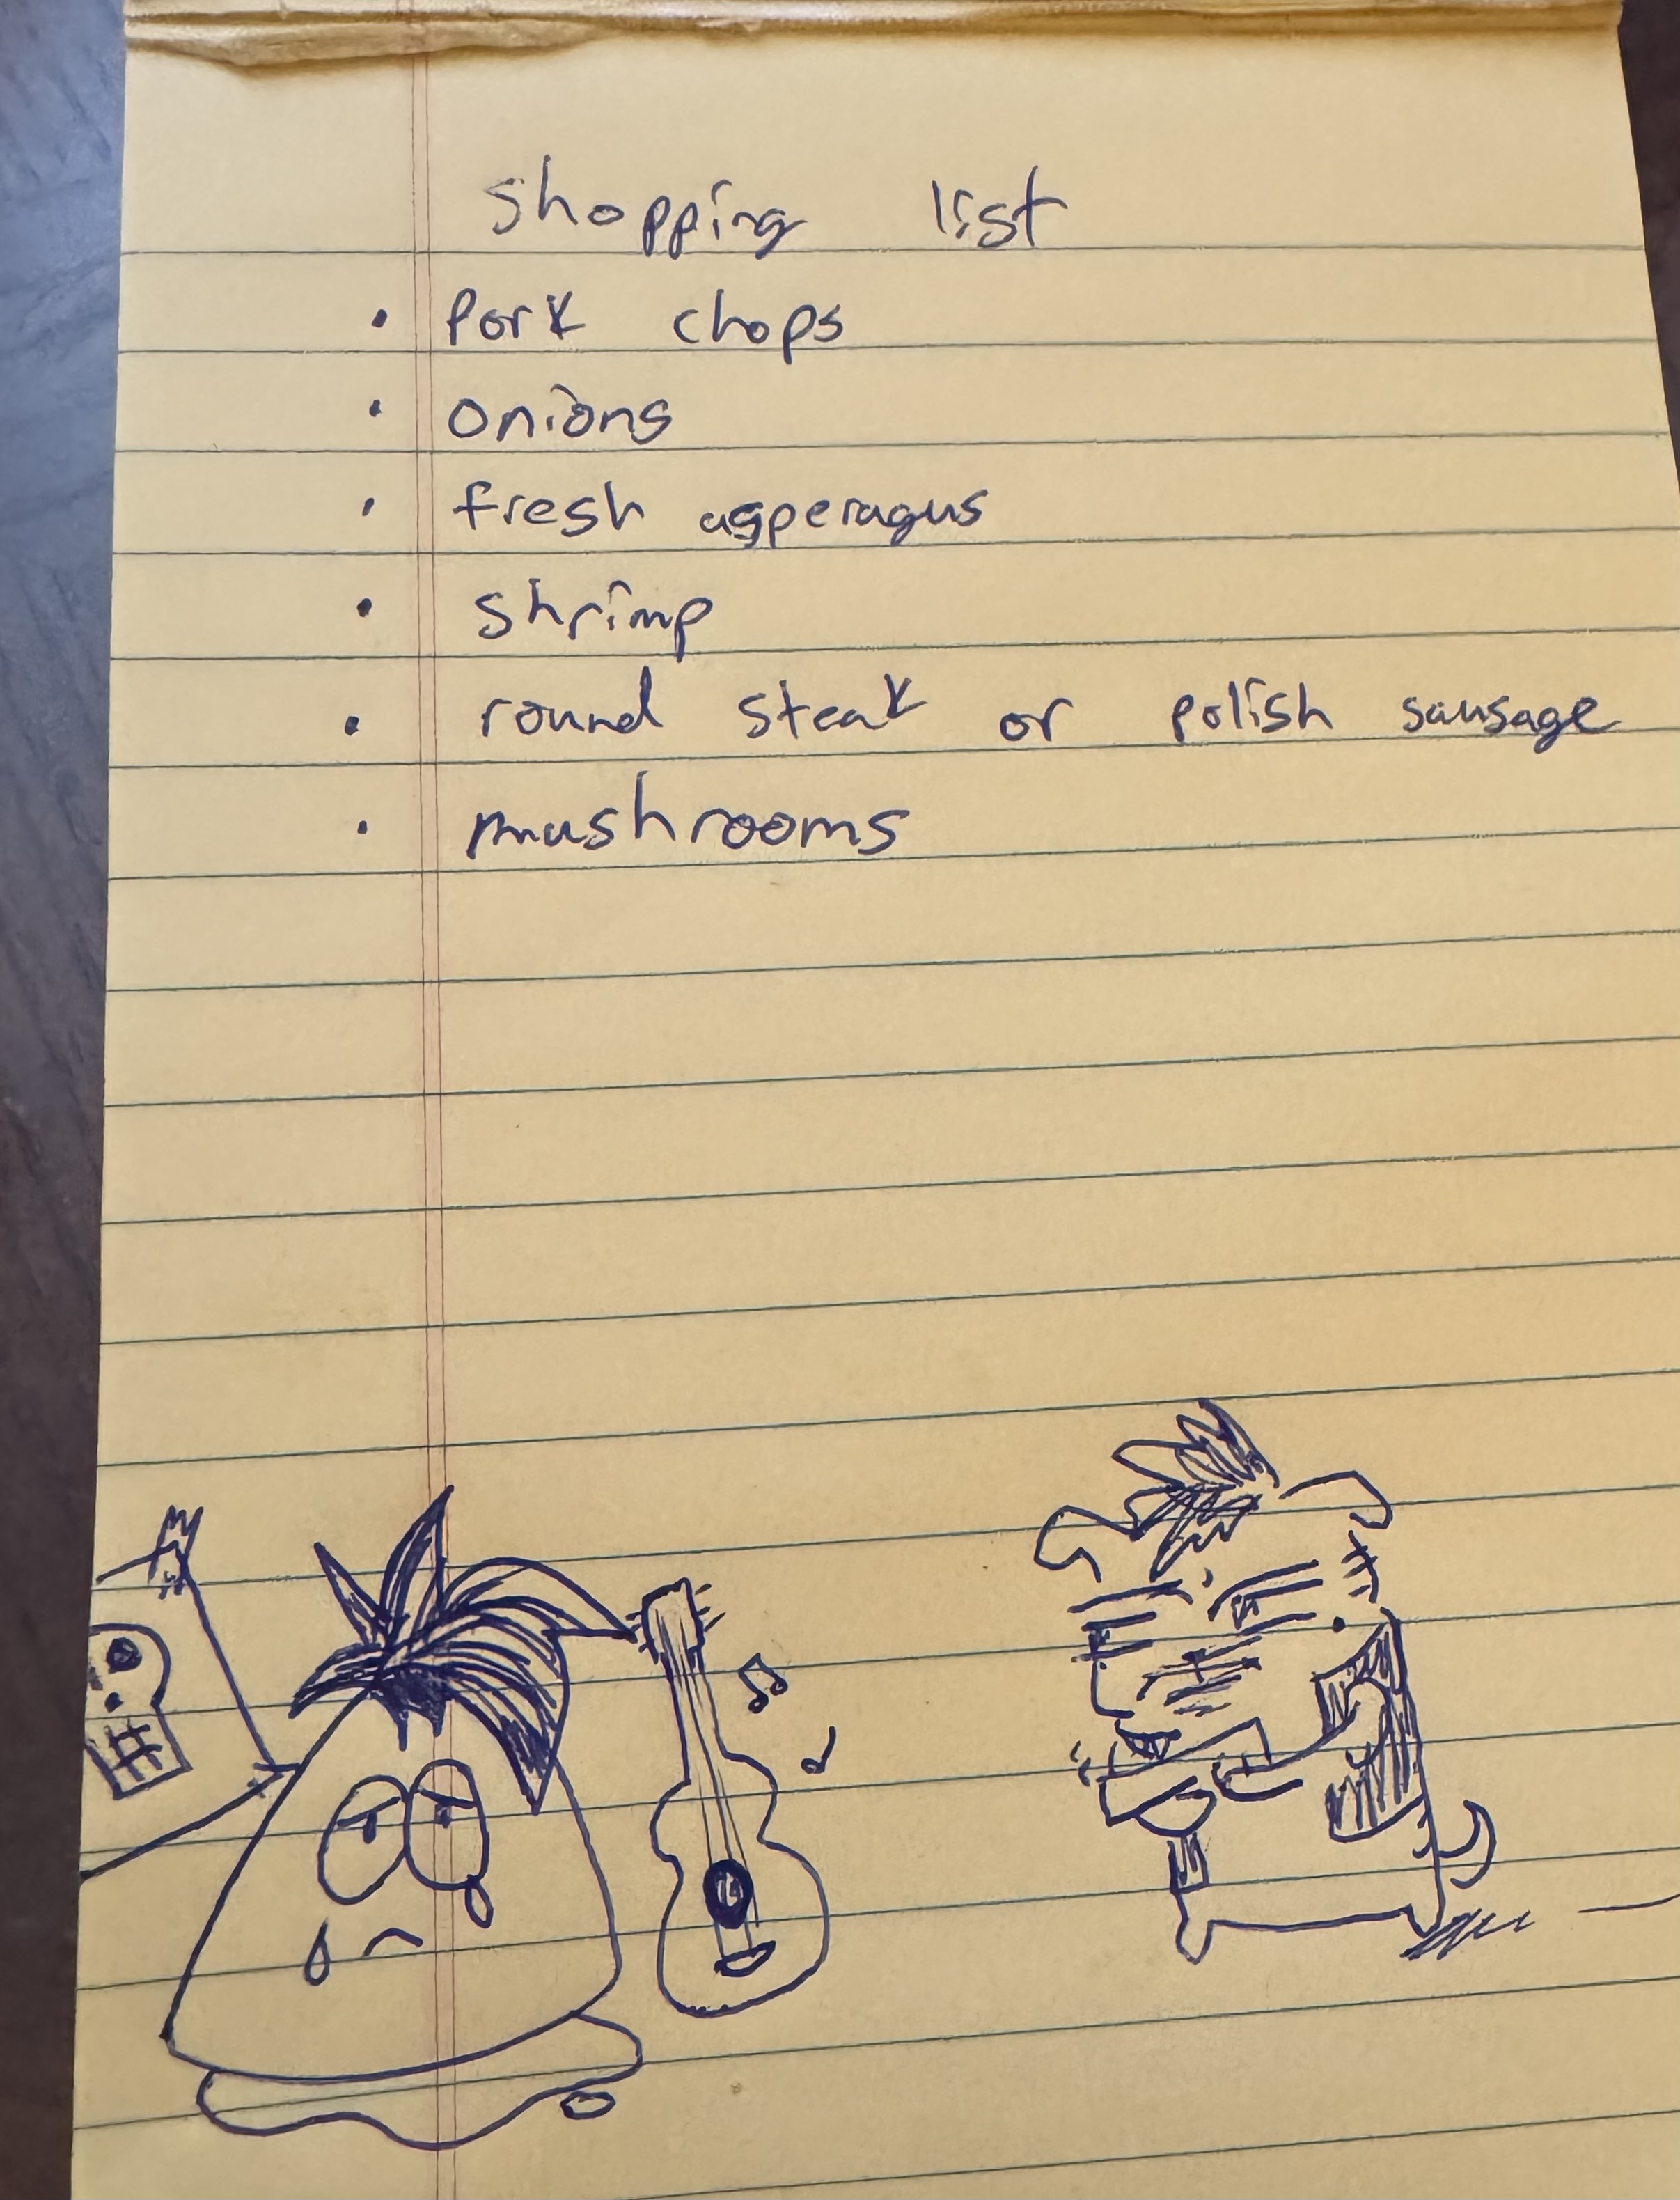 shopping list
• Pork chops
• onions
• fresh asperagus
• shrimp
• round steak or polish sausage
• mushrooms